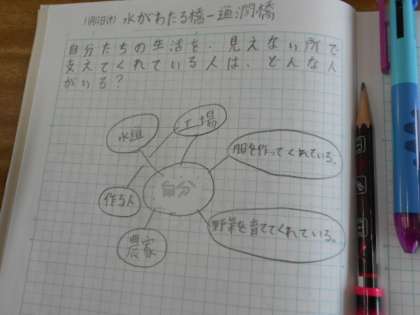 水がわたる橋－通潤橋
自分たちの生活を、見えない所で
支えてくれている人は、どんな人
がいる？
工場
水道
服を作ってくれている。
自分
作る人
野菜を育ててくれている。
農家